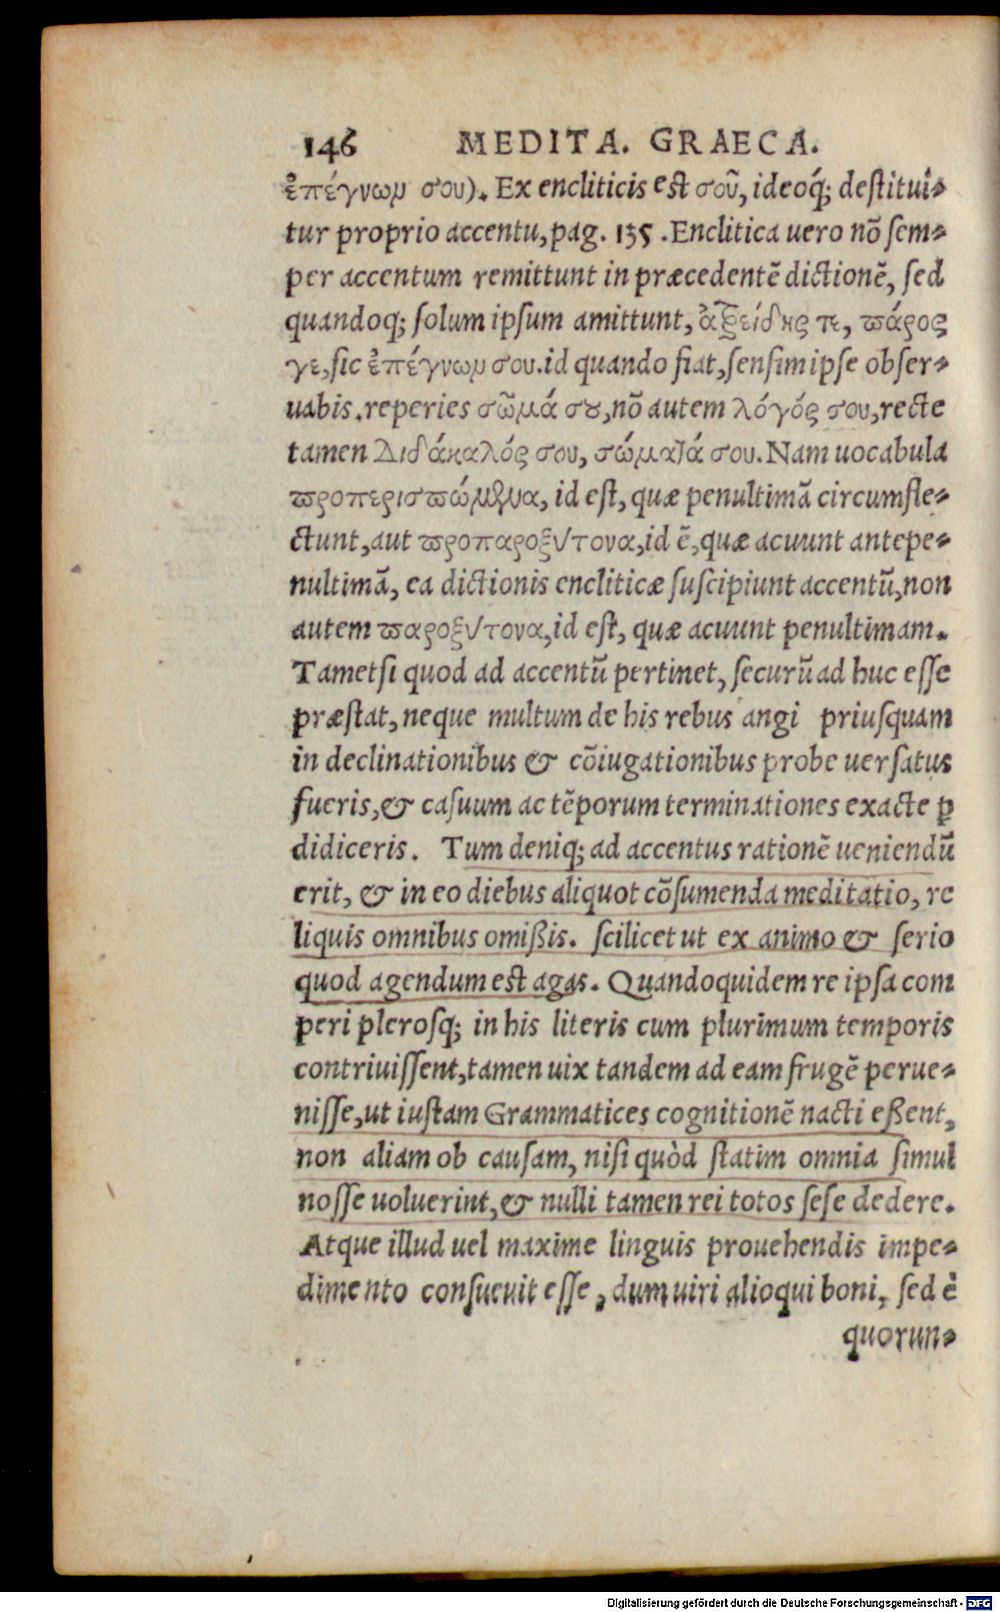 146 MEDITA. GRAECA.
ἐπέγνων σου). Ex encliticis est σοῦ, ideoq́; destitui-
tur proprio accentu, pag. 135. Enclitica uero nõ sem-
per accentum remittunt in præcedentẽ dictionẽ, sed
quandoq; solum ipsum amittunt, ἀτρείδης τε, πάρος
γε, sic ἐπέγνων σου. id quando fiat, sensim ipse obser-
uabis. reperies σῶμά σȣ, nõ autem λόγός σου, recte
tamen Διδάκαλός σου, σώματά σου. Nam uocabula
προπερισπώμενα, id est, quæ penultimã circumfle-
ctunt, aut προπαροξύτονα, id ẽ, quæ acuunt antepe-
nultimã, ea dictionis encliticæ suscipiunt accentũ, non
autem παροξύτονα, id est, quæ acuunt penultimam.
Tametsi quod ad accentũ pertinet, securũ ad huc esse
præstat, neque multum de his rebus angi priusquam
in declinationibus & cõiugationibus probe uersatus
fueris, & casuum ac tẽporum terminationes exacte ꝑ
didiceris. Tum deniq; ad accentus rationẽ ueniendũ
erit, & in eo diebus aliquot cõsumenda meditatio, re
liquis omnibus omißis. scilicet ut ex animo & serio
quod agendum est agas. Quandoquidem re ipsa com
peri plerosq; in his literis cum plurimum temporis
contriuissent, tamen uix tandem ad eam frugẽ perue-
nisse, ut iustam Grammatices cognitionẽ nacti eßent,
non aliam ob causam, nisi quòd statim omnia simul
nosse uoluerint, & nulli tamen rei totos sese dedere.
Atque illud uel maxime linguis prouehendis impe-
dimento consueuit esse, dum uiri alioqui boni, sed è
quorun-
Digitalisierung gefördert durch die Deutsche Forschungsgemeinschaft - DFG